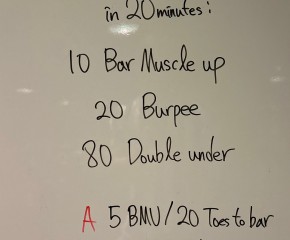 in 20 minutes:
10 Bar Muscle up
20 Burpee
80 Double under
A 5 BMU/20 Toes to bar